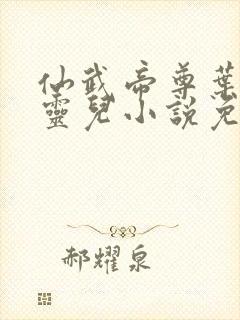 仙武帝尊葉
靈兒小說免
郝耀泉